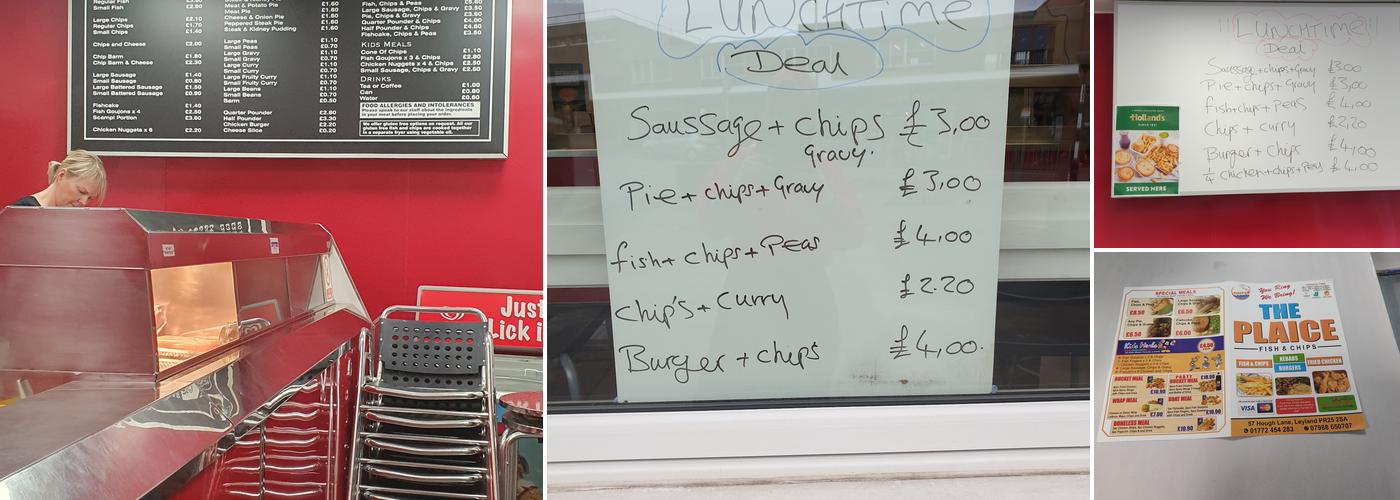 Regular Fish
Small Fish £2.80
Large Chips £2.10
Regular Chips £1.70
Small Chips £1.40
Chips and Cheese £2.00
Chip Barm £1.80
Chip Barm & Cheese £2.30
Large Sausage £1.40
Small Sausage £0.80
Large Battered Sausage £1.50
Small Battered Sausage £0.90
Fishcake £1.40
Fish Goujons x 4 £2.80
Scampi Portion £3.60
Chicken Nuggets x 6 £2.20
Meat & Potato Pie £1.60
Meat Pie £1.60
Cheese & Onion Pie £1.60
Peppered Steak Pie £1.60
Steak & Kidney Pudding £1.60
Large Peas £1.10
Small Peas £0.70
Large Gravy £1.10
Small Gravy £0.70
Large Curry £1.10
Small Curry £0.70
Large Fruity Curry £1.10
Small Fruity Curry £0.80
Large Beans £1.10
Small Beans £0.70
Barm £0.50
Quarter Pounder £2.80
Half Pounder £3.30
Chicken Burger £2.20
Cheese Slice £0.20
Fish, Chips & Peas £5.60
Large Sausage, Chips & Gravy £3.60
Pie, Chips & Gravy £3.80
Quarter Pounder & Chips £4.00
Half Pounder & Chips £4.60
Fishcake, Chips & Peas £3.80
KIDS MEALS
Cone Of Chips £1.10
Fish Goujons x 3 & Chips £2.80
Chicken Nuggets x 4 & Chips £2.50
Small Sausage, Chips & Gravy £2.60
DRINKS
Tea or Coffee £1.00
Can £0.80
Water £0.60
FOOD ALLERGIES AND INTOLERANCES
Please speak to our staff about the ingredients
in your meal before placing your order.
We offer gluten free options on request. All our
gluten free fish and chips are cooked together
in a separate fryer using vegetable oil.
Just
Lick i
LUNCHTIME
Deal
Saussage + chips £3,00
gravy.
Pie + chips + Gravy £3,00
fish + chips + Peas £4,00
Chip's + Curry £2.20
Burger + chips £4,00.
!!LUNCHTIME!!
Deal
Saussage + chips + Gravy £3,00
Pie + chips + Gravy £3,00
fish + chips + Peas £4,00
Chips + Curry £2,20
Burger + Chips £4,00
1/4 chicken + chips + Peas £4,00
Holland's
SERVED HERE
SPECIAL MEALS
£8.50
£6.50
£6.50
£6.00
Kids Meals
£4.50
BUCKET MEAL £18.90
PARTY BUCKET MEAL
WRAP MEAL £7.00
BOAT MEAL £10.90
BONELESS MEAL £10.90
You Ring
We Bring!
THE
PLAICE
FISH & CHIPS
FISH & CHIPS
KEBABS
BURGERS
FRIED CHICKEN
VISA
57 Hough Lane, Leyland PR25 2SA
01772 454 283 07988 650707